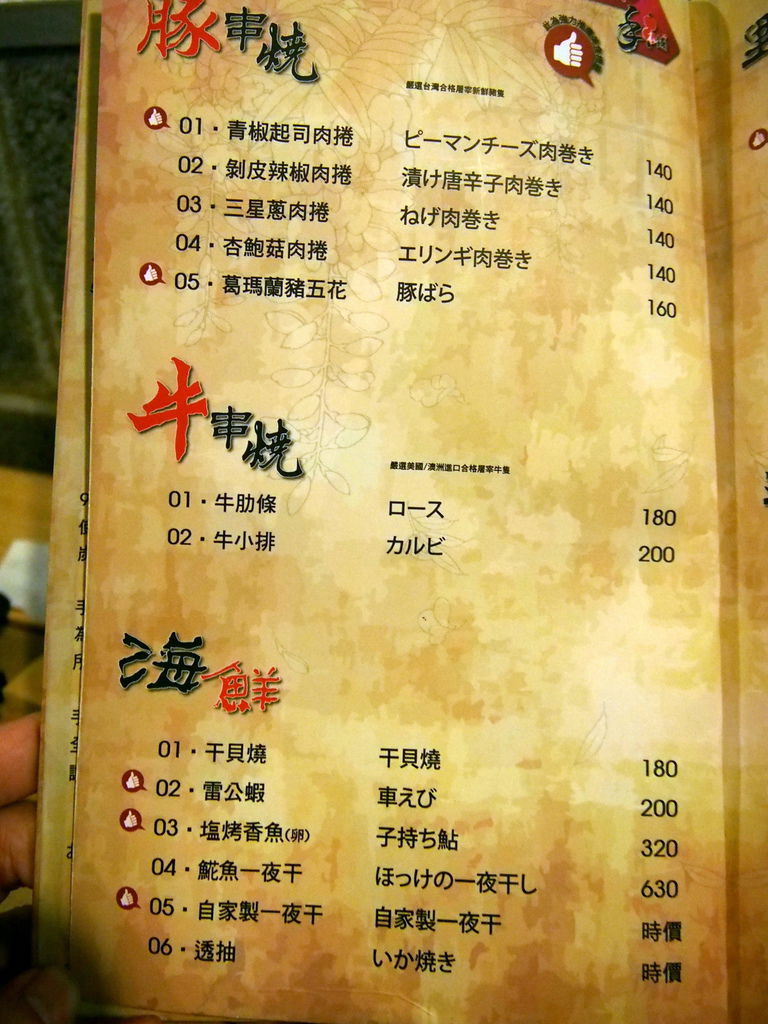 豚串燒
嚴選台灣合格屠宰新鮮豬隻
01・青椒起司肉捲 ピーマンチーズ肉巻き 140
02・剝皮辣椒肉捲 漬け唐辛子肉巻き 140
03・三星蔥肉捲 ねげ肉巻き 140
04・杏鮑菇肉捲 エリンギ肉巻き 140
05・葛瑪蘭豬五花 豚ばら 160
牛串燒
嚴選美國/澳洲進口合格屠宰牛隻
01・牛肋條 ロース 180
02・牛小排 カルビ 200
海鮮
01・干貝燒 干貝燒 180
02・雷公蝦 車えび 200
03・塩烤香魚(卵) 子持ち鮎 320
04・鯱魚一夜干 ほっけの一夜干し 630
05・自家製一夜干 自家製一夜干 時價
06・透抽 いか焼き 時價